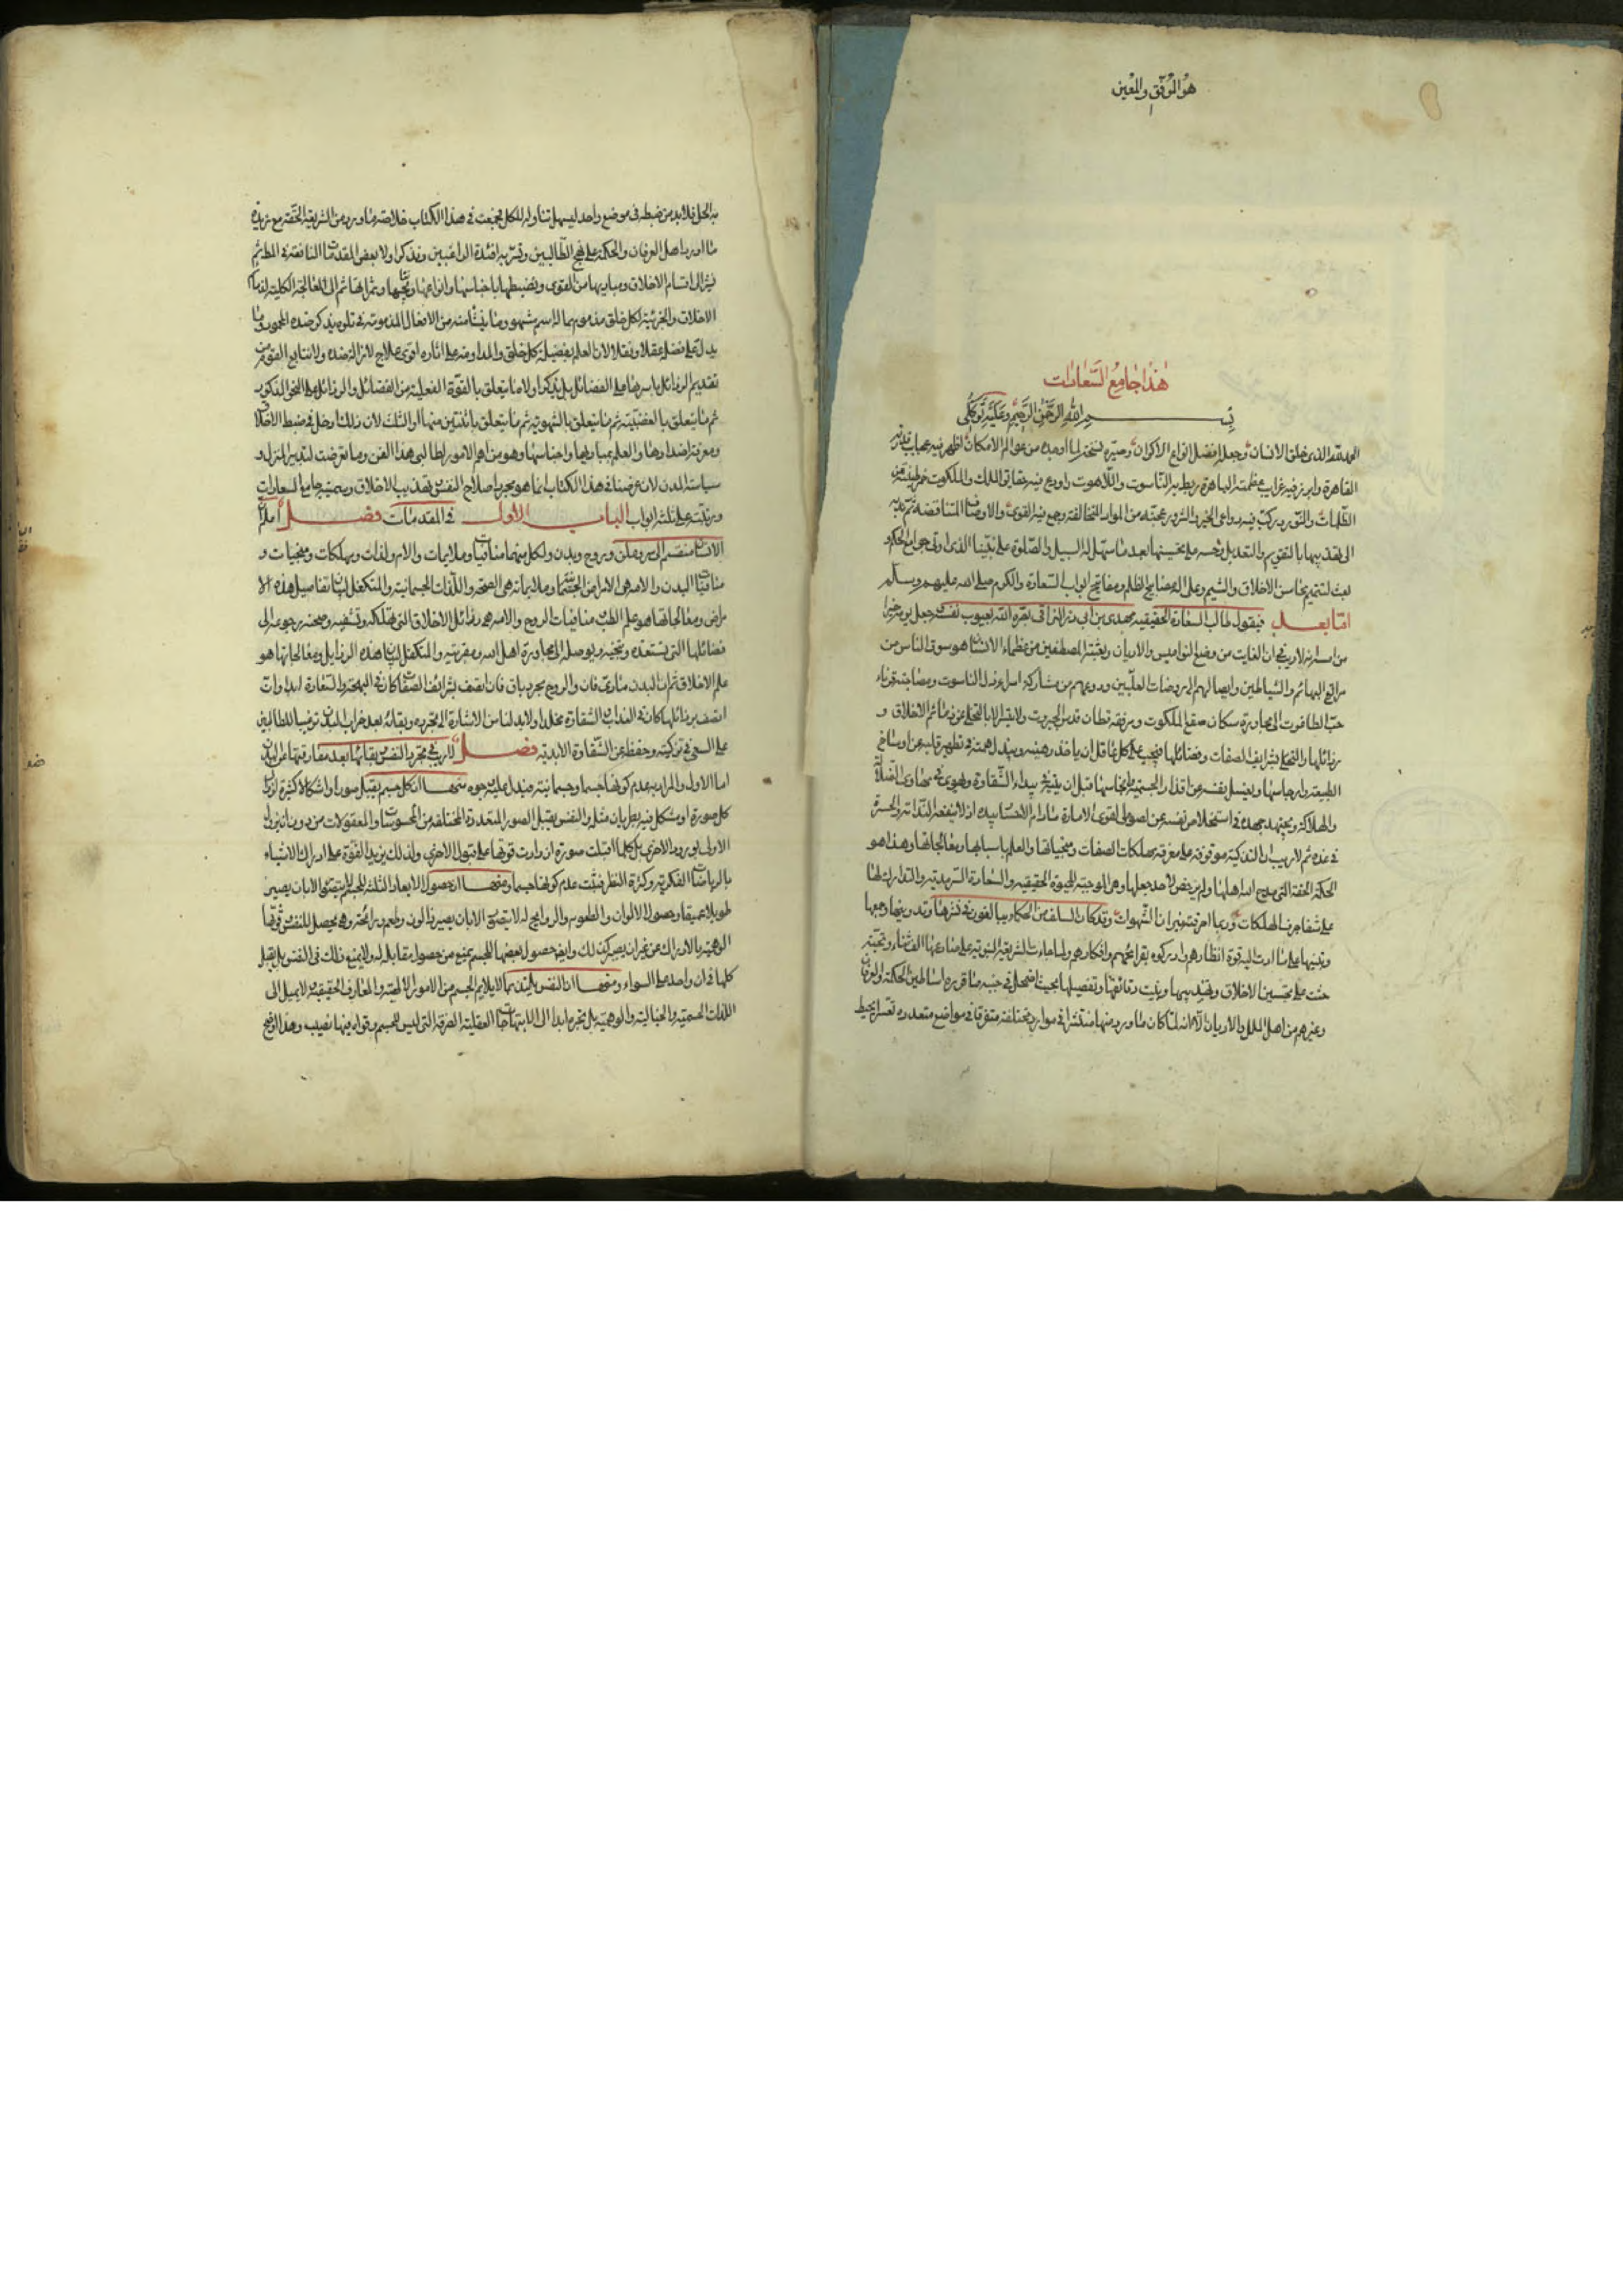 هو الموفق والمعين
هذا جامع السعادات
بسم الله الرحمن الرحيم وعليه توكلي
الحمد لله الذى خلق الانسان وجعله افضل انواع الاكوان وصيره نسخة لما اوجده من عوالم الامكان اظهر فيه عجايب قدرته
القاهرة وابرز فيه غرايب عظمته الباهرة ربط به الناسوت واللاهوت واودع فيه حقايق الملك والملكوت خمر طينته من
الظلمات والنور وركب فيه دواعى الخير والشرور عجنه من المواد المتخالفة وجمع فيه القوى والاوصاف المتناقضة ثم ندبه
الى تهذيبها بالتقويم والتعديل وحثه على تحسينها بعد ما سهل له السبيل والصلوة على نبينا الذى اوتى جوامع الحكم و
بعث لتتميم محاسن الاخلاق والشيم وعلى اله مصابيح الظلم ومفاتيح ابواب السعادة والكرم صلى الله عليه وعليهم وسلم
اما بعد فيقول طالب السعادة الحقيقيه مهدى بن ابى ذر النراقى بصره الله بعيوب نفسه وجعل يومه خيرا
من امسه انه لا ريب فى ان الغاية من وضع النواميس والاديان وبعثة المصطفين من عظماء الانسان هو سوق الناس من
مراتع البهائم والشياطين وايصالهم الى روضات العليين وردعهم عن مشاركة اسراء ذل الناسوت ومصاحبة قرناء
جب الطاغوت الى مجاورة سكان صقع الملكوت ومرافقة قطان قدس الجبروت ولا يتيسر الا بالتخلى عن ذمائم الاخلاق و
رذائلها والتحلى بشرايف الصفات وفضائلها فيجب على كل عاقل ان ياخذ اهبته ويبذل همته فى تطهير قلبه عن اوساخ
الطبيعة وارجاسها وتغسيل نفسه عن اقذار الجسمية وانجاسها قبل ان يتيه فى بيداء الشقاوة ويهوى فى مهاوى الضلالة
والهلاكة ويجتهد جهده فى استخلاص نفسه عن لصوص القوى الامارة ما دام الاختيار بيده اذ لا ينفعه الندامة والحسرة
فى غده ثم لا ريب ان التزكية موقوفة على معرفة مهلكات الصفات ومنجياتها والعلم باسبابها ومعالجاتها وهذا هو
الحكمة الحقة التى مدح الله اهلها ولم يرخص لاحد جهلها وهى الموجبة للحيوة الحقيقيه والسعادة السرمدية والتارك لها
على شفا جرف الهلكات وربما احرقته نيران الشهوات وقد كان السلف من الحكماء يبالغون فى نشرها وتدوينها وجمعها
وتبيينها على ما ادت اليه قوة انظارهم وادركوه بقرائحهم وافكارهم ولما جاءت الشريعة النبوية على صادعها الف ثناء وتحية
حثت على تحسين الاخلاق وتهذيبها وبينت دقائقها وتفصيلها بحيث اضمحل فى جنبه ما قرره اساطين الحكمة والعرفان
وغيرهم من اهل الملل والاديان الا انه لما كان ما ورد منها منتشرا فى موارد مختلفة متفرقا فى مواضع متعدده تعسر ان يحيط
به الجل فلا بد من ضبطه فى موضع واحد ليسهل تناوله للكل فجمعت فى هذا الكتاب خلاصة ما ورد من الشريعة الحقة مع زبدة
ما اورده اهل العرفان والحكمة على نهج الطالبين وتسر به افئدة الراغبين ونذكر اولا بعض المقدمات النافعة فى المط ثم
نشير الى اقسام الاخلاق ومباديها من القوى ونضبطها باجناسها وانواعها ونتايجها وثمراتها ثم الى المعالجة الكلية لذمائم
الاخلاق والجزئية لكل خلق مذموم مما له اسم مشهور وما ينشأ منه من الافعال المذمومة فى تلوه نذكر ضده المحمود وما
يدل على فضله عقلا ونقلا لان العلم بفضيلة كل خلق والمداومة على اثاره اقوى علاج لازالة ضده ولا نتابع القوم من
تقديم الرذائل باسرها على الفضائل بل نذكر اولا ما يتعلق بالقوة العقلية من الفضائل والرذائل على النحو المذكور
ثم ما يتعلق بالغضبية ثم ما يتعلق بالشهوية ثم ما يتعلق باثنتين منها او الثلث لان ذلك ادخل فى ضبط الاخلاق
ومعرفة اضدادها والعلم بمباديها واجناسها وهو من اهم الامور لطالبى هذا الفن وما تعرضت لتدبير المنزل و
سياسة المدن لان غرضنا فى هذا الكتاب انما هو مجرد اصلاح النفس وتهذيب الاخلاق وسميته جامع السعادات
ورتبته على ثلثة ابواب الباب الاول فى المقدمات فصل اعلم ان
الانسان منقسم الى سر وعلن وروح وبدن ولكل منهما منافيات وملايمات والام ولذات ومهلكات ومنجيات و
منافيات البدن والامه هى الامراض الجسمانية وملايماته هى الصحة واللذات الجسمانية والمتكفل لبيان تفاصيل هذه الا
مراض ومعالجاتها هو علم الطب ومنافيات الروح والامه هى رذائل الاخلاق التى تهلكه وتشقيه وصحته رجوعه الى
فضائلها التى تسعده وتنجيه ويوصله الى مجاورة اهل الله ومقربيه والمتكفل لبيان هذه الرذايل ومعالجاتها هو
علم الاخلاق ثم ان البدن مادى فان والروح مجرد باق فان اتصف بشرائف الصفات كان فى البهجة والسعادة ابدا وان
اتصف برذائلها كان فى العذاب والشقاوة مخلدا ولا بد لنا من الاشارة الى تجرده وبقائه بعد خراب البدن ترغيبا للطالبين
على السعى فى تزكيته وحفظه عن الشقاوة الابديه فصل لا ريب فى تجرد النفس وبقائها بعد مفارقتها عن البدن
اما الاول والمراد به عدم كونها جسما وجسمانية فيدل عليه وجوه منها ان كل جسم لا يقبل صورا واشكالا كثيرة لزوال
كل صورة او شكل فيه بطريان مثله والنفس يقبل الصور المتعددة المختلفة من المحسوسات والمعقولات من دون ان يزول
الاولى بورود الاخرى بل كلما قبلت صورة ازدادت قوتها على قبول الاخرى ولذلك يزيد القوة على ادراك الاشياء
بالرياضات الفكرية وكثرة النظر فثبت عدم كونها جسما ومنها ان حصول الابعاد الثلثة للجسم لا يتصور الا بان يصير
طويلا عريضا عميقا وحصول الالوان والطعوم والروايح له لا يتصور الا بان يصير ذا لون وطعم ورائحة وهى يحصل للنفس بقوتها
الوهمية بالادراك من غير ان يصير كذلك وايض حصول بعضها للجسم يمنع من حصول مقابله له ولا يمنع ذلك فى النفس بل يقبل
كلها فى ان واحد على السواء ومنها ان النفس يلتذ بما لا يلايم الجسم من الامور الالهية والمعارف الحقيقية ولا يميل الى
اللذات الجسمية والخيالية والوهمية بل يحن ابدا الى الابتهاجات العقلية الصرفة التى ليس للجسم وقواه فيها نصيب وهذا اوضح